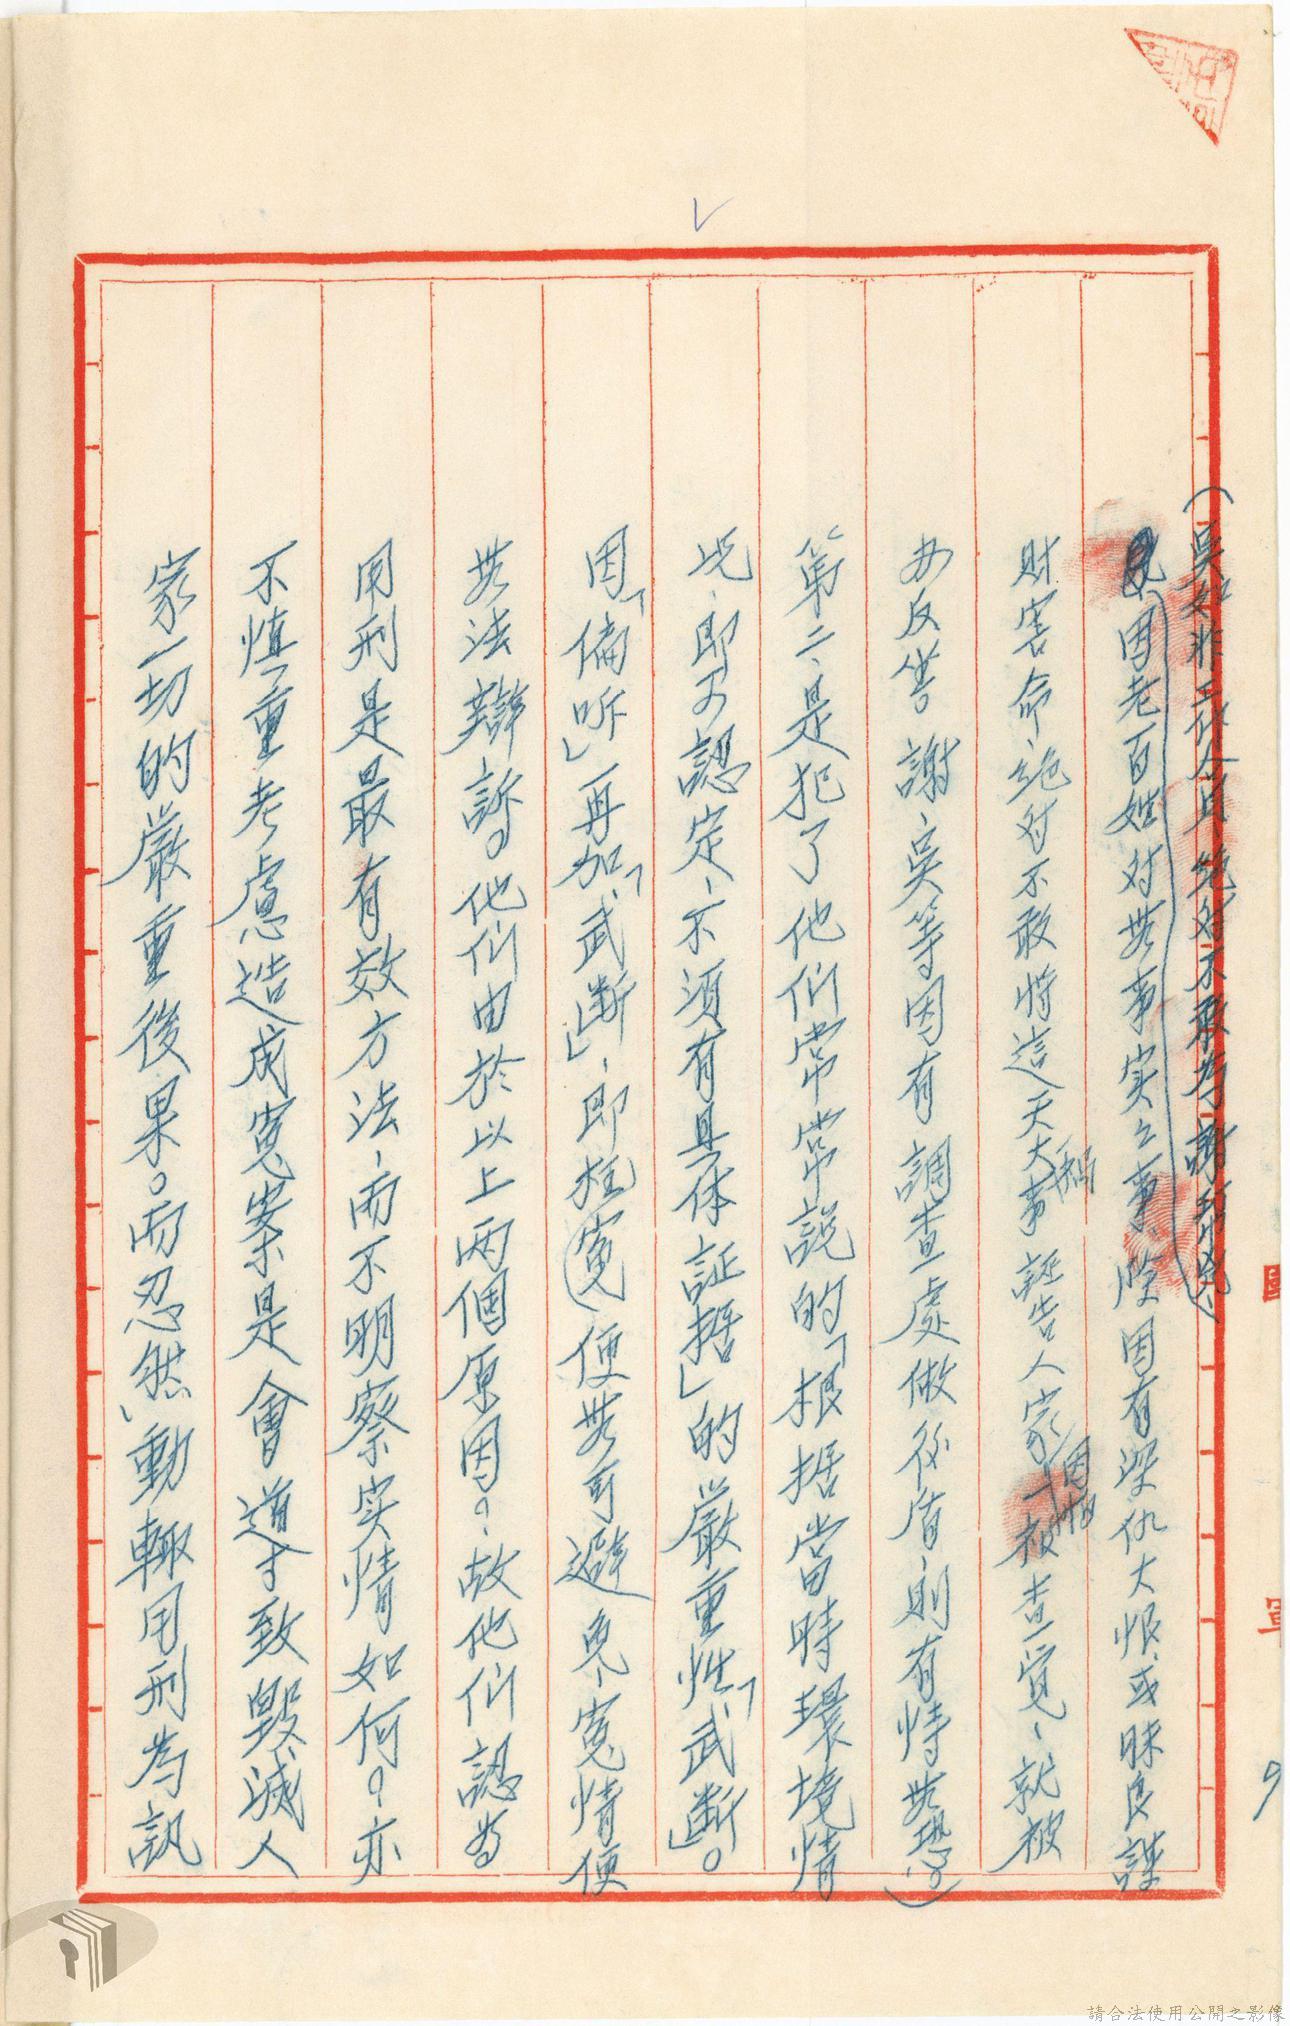 (吳如非工作人員絕对不敢為謝
因老百姓对無事实之事、除因有深仇大恨、或昧良謀
財害命、絕对不敢將這天大事禍誣告人家、因怕一被查覚、就被
办反告。謝、吳等因有調查處做後盾、則有恃無恐。)
第二、是犯了他们常常說的「根据當時環境情
況、即可認定、不須有具体証据」的嚴重性「武断」。
因「偏听」再加「武断」、即枉(寃)便無可避免、寃情便
無法辯訴。他们由於以上两個原因。故他们認為
用刑是最有效方法、而不明察实情如何。亦
不慎重考慮造成寃案是會導致毀滅人
家一切的嚴重後果。而忍然動輙用刑為訊
9
請合法使用公開之影像